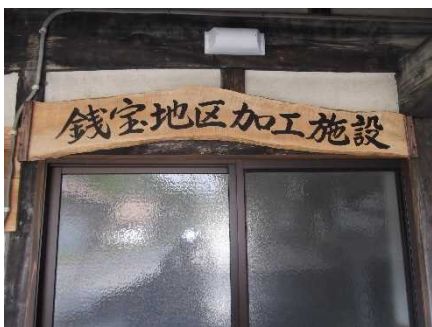 銭宝地区加工施設